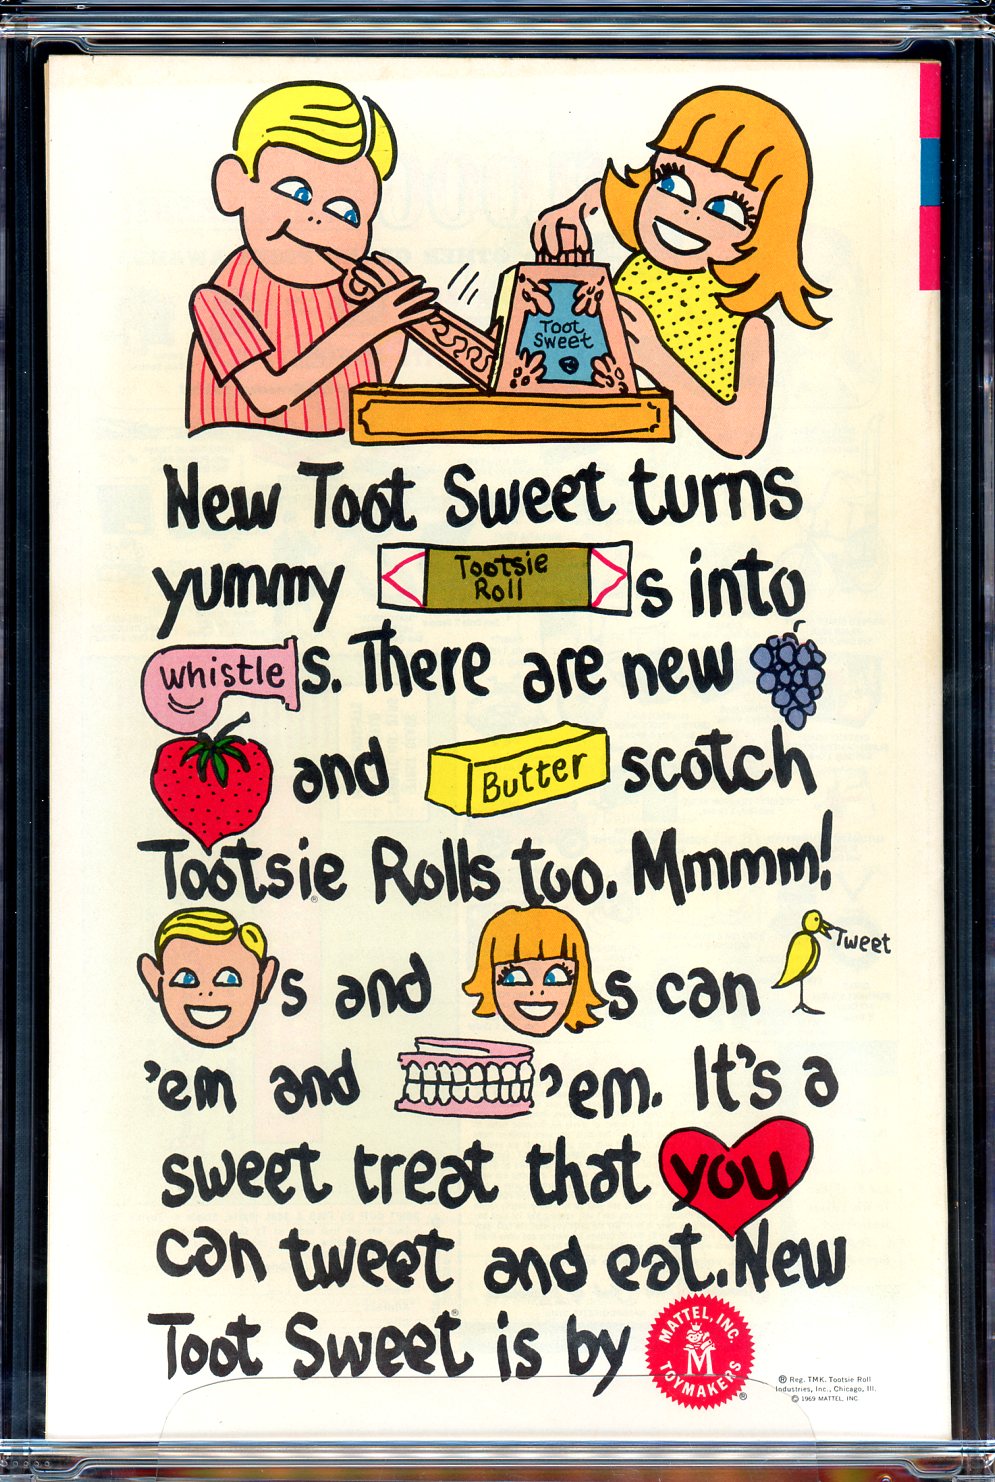 Toot
Sweet
New Toot Sweet turns
yummy Tootsie Roll s into
whistle s. There are new
and Butter scotch
Tootsie Rolls too. Mmmm!
®
Tweet
s and s can
'em and 'em. It's a
sweet treat that you
can tweet and eat. New
Toot Sweet® is by
MATTEL, INC.
M
TOYMAKERS
®
® Reg. TMK. Tootsie Roll
Industries, Inc., Chicago, Ill.
© 1969 MATTEL, INC.